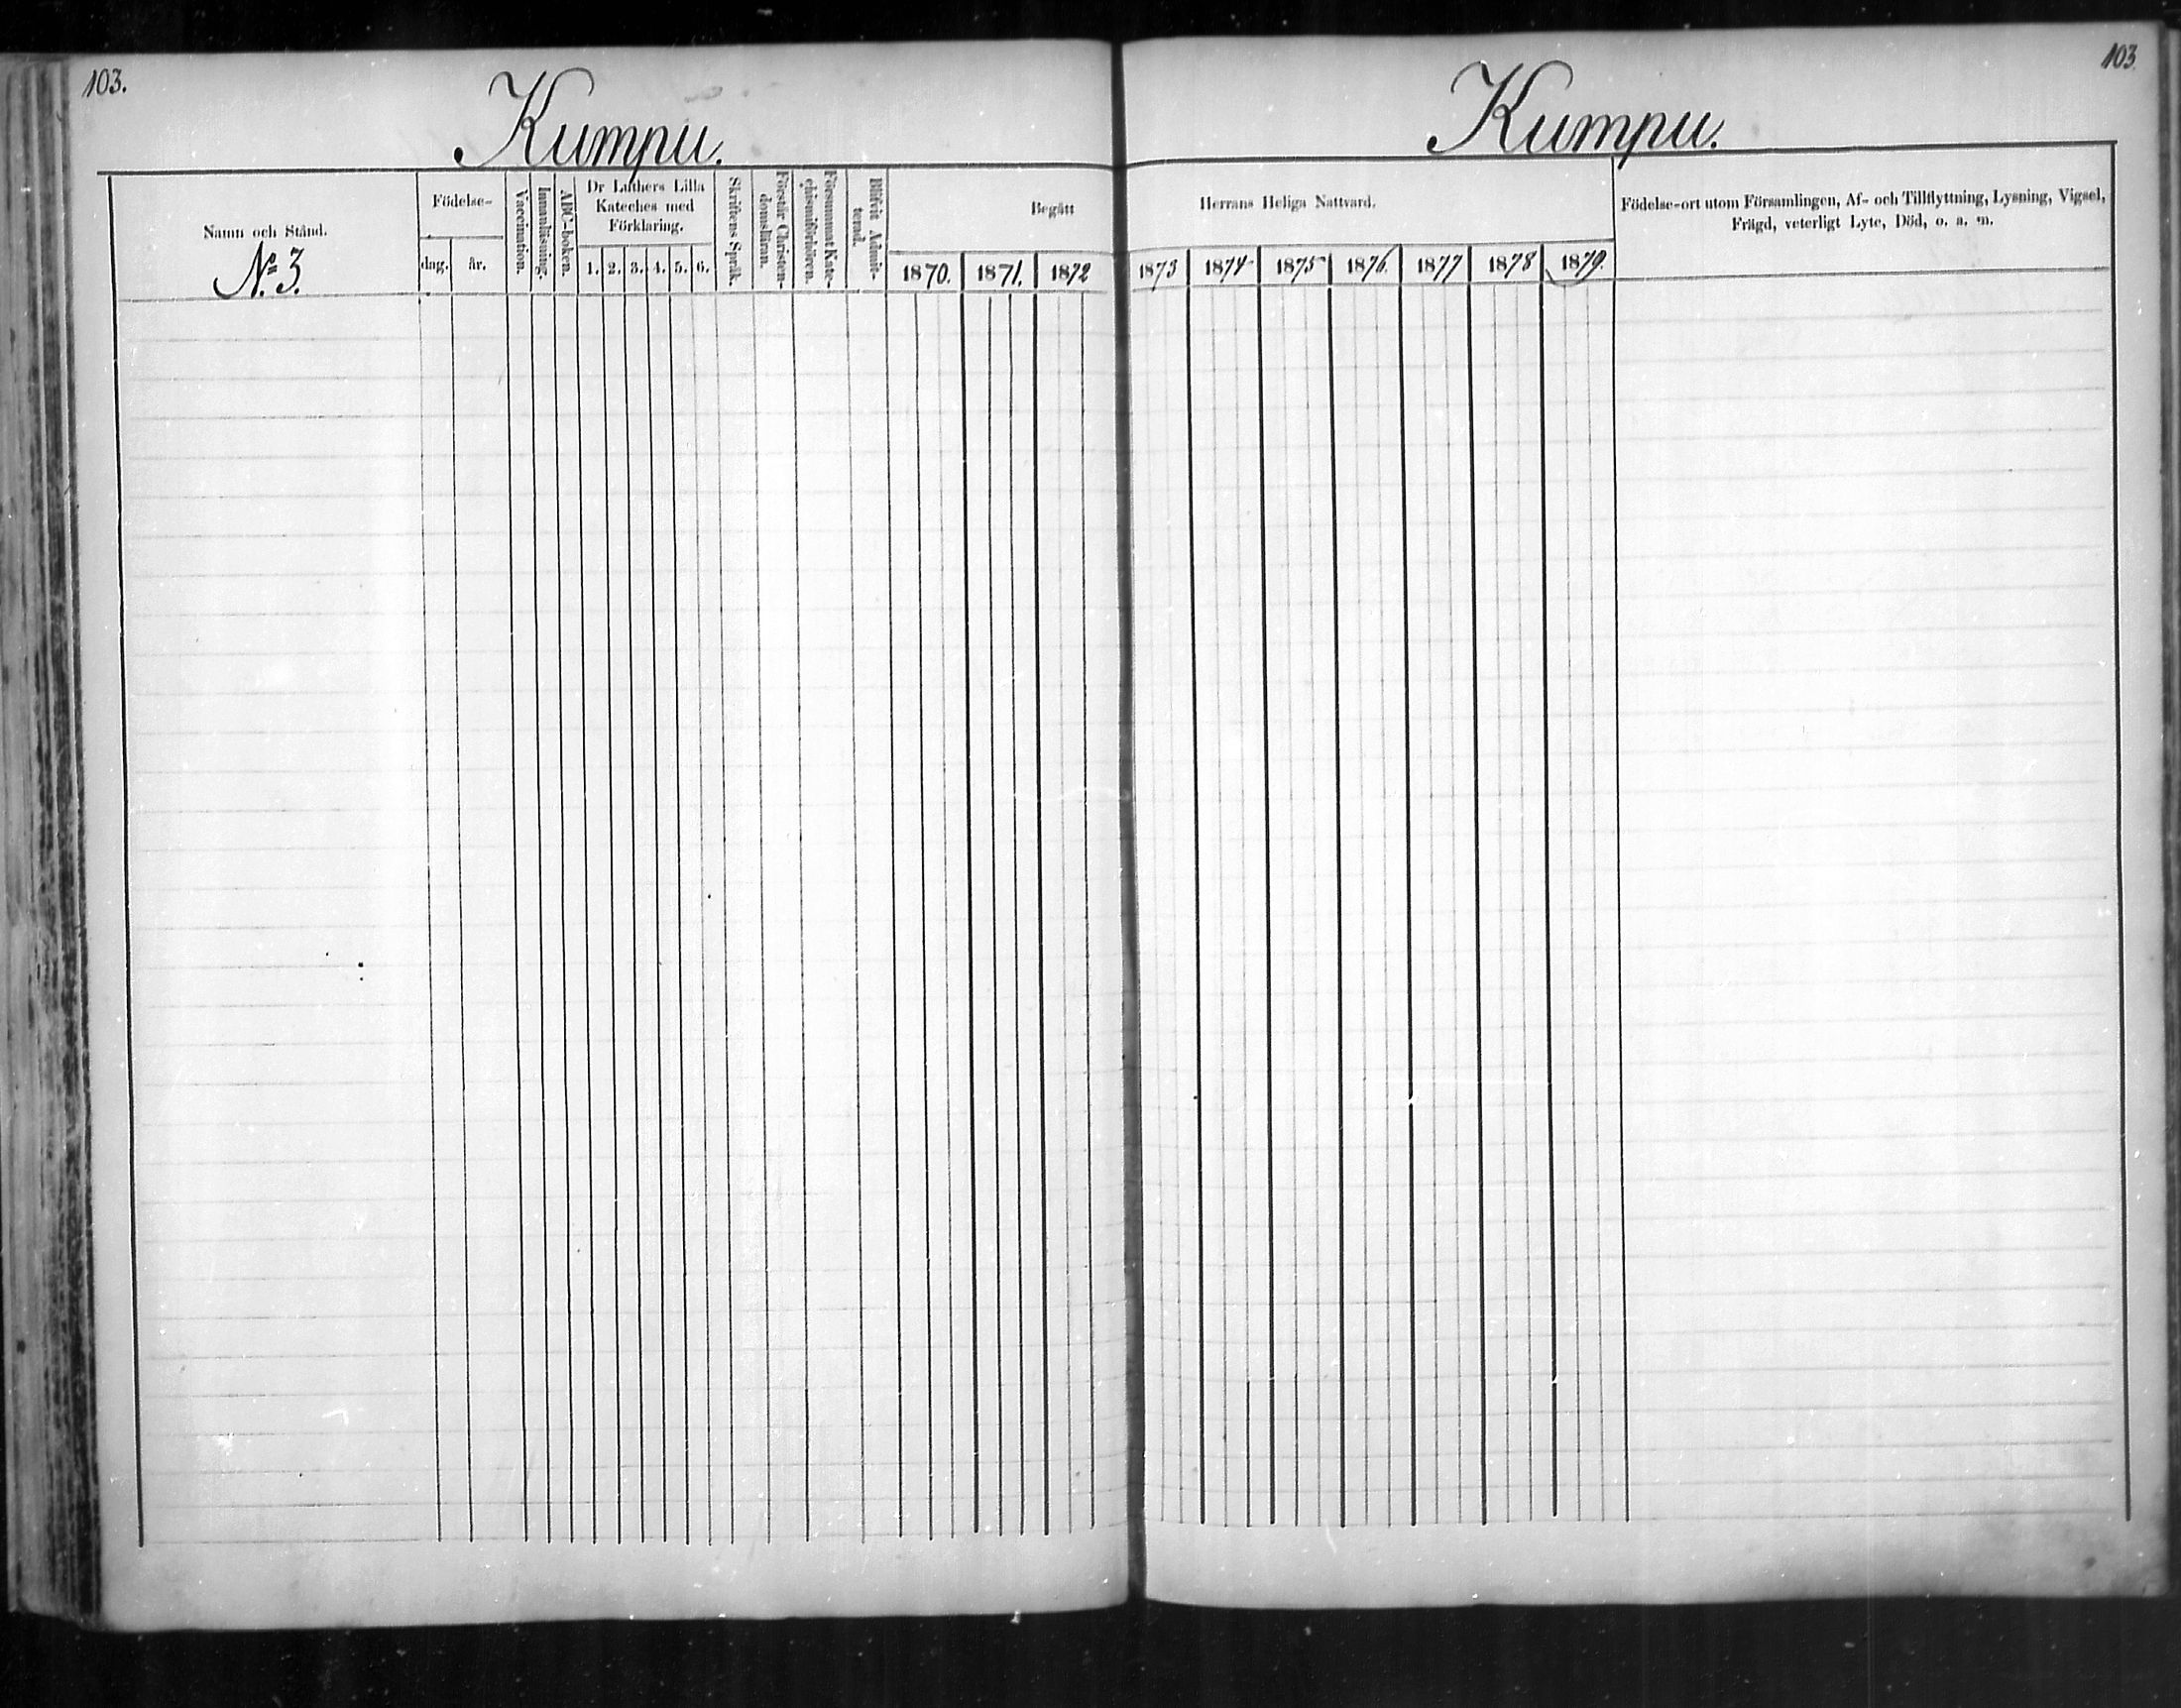 103.
Kumpu.
Namn och Stånd.
No 3.
Födelse-
dag.
år.
Vaccination.
Innanläsning.
ABC-boken.
Dr Luthers Lilla
Kateches med
Förklaring.
1. 2. 3. 4. 5. 6.
Skriftens Språk.
Förstår Christen-
domsläran.
Försummat Kate-
chismiförhören.
Blifvit Admit-
terad.
Begått
1870. 1871. 1872
103
Kumpu.
Herrans Heliga Nattvard.
1873 1874 1875 1876. 1877 1878 1879.
Födelse-ort utom Församlingen, Af- och Tillflyttning, Lysning, Vigsel,
Frägd, veterligt Lyte, Död, o. a. m.